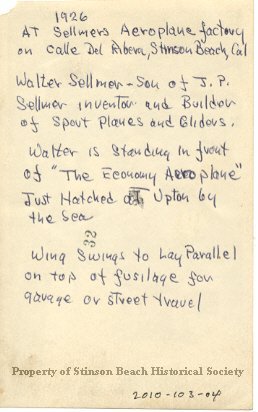 1926
AT Sellmers Aeroplane factory
on Calle Del Ribera, Stinson Beach, Cal
Walter Sellmer - Son of J. P.
Sellmer inventor and Builder
of Sport Planes and Gliders.
Walter is Standing in front
of "The Economy Aeroplane"
Just Hatched at Upton by
the Sea
32
Wing Swings to Lay Parallel
on top of fusilage for
garage or street travel
Property of Stinson Beach Historical Society
2010-103-04